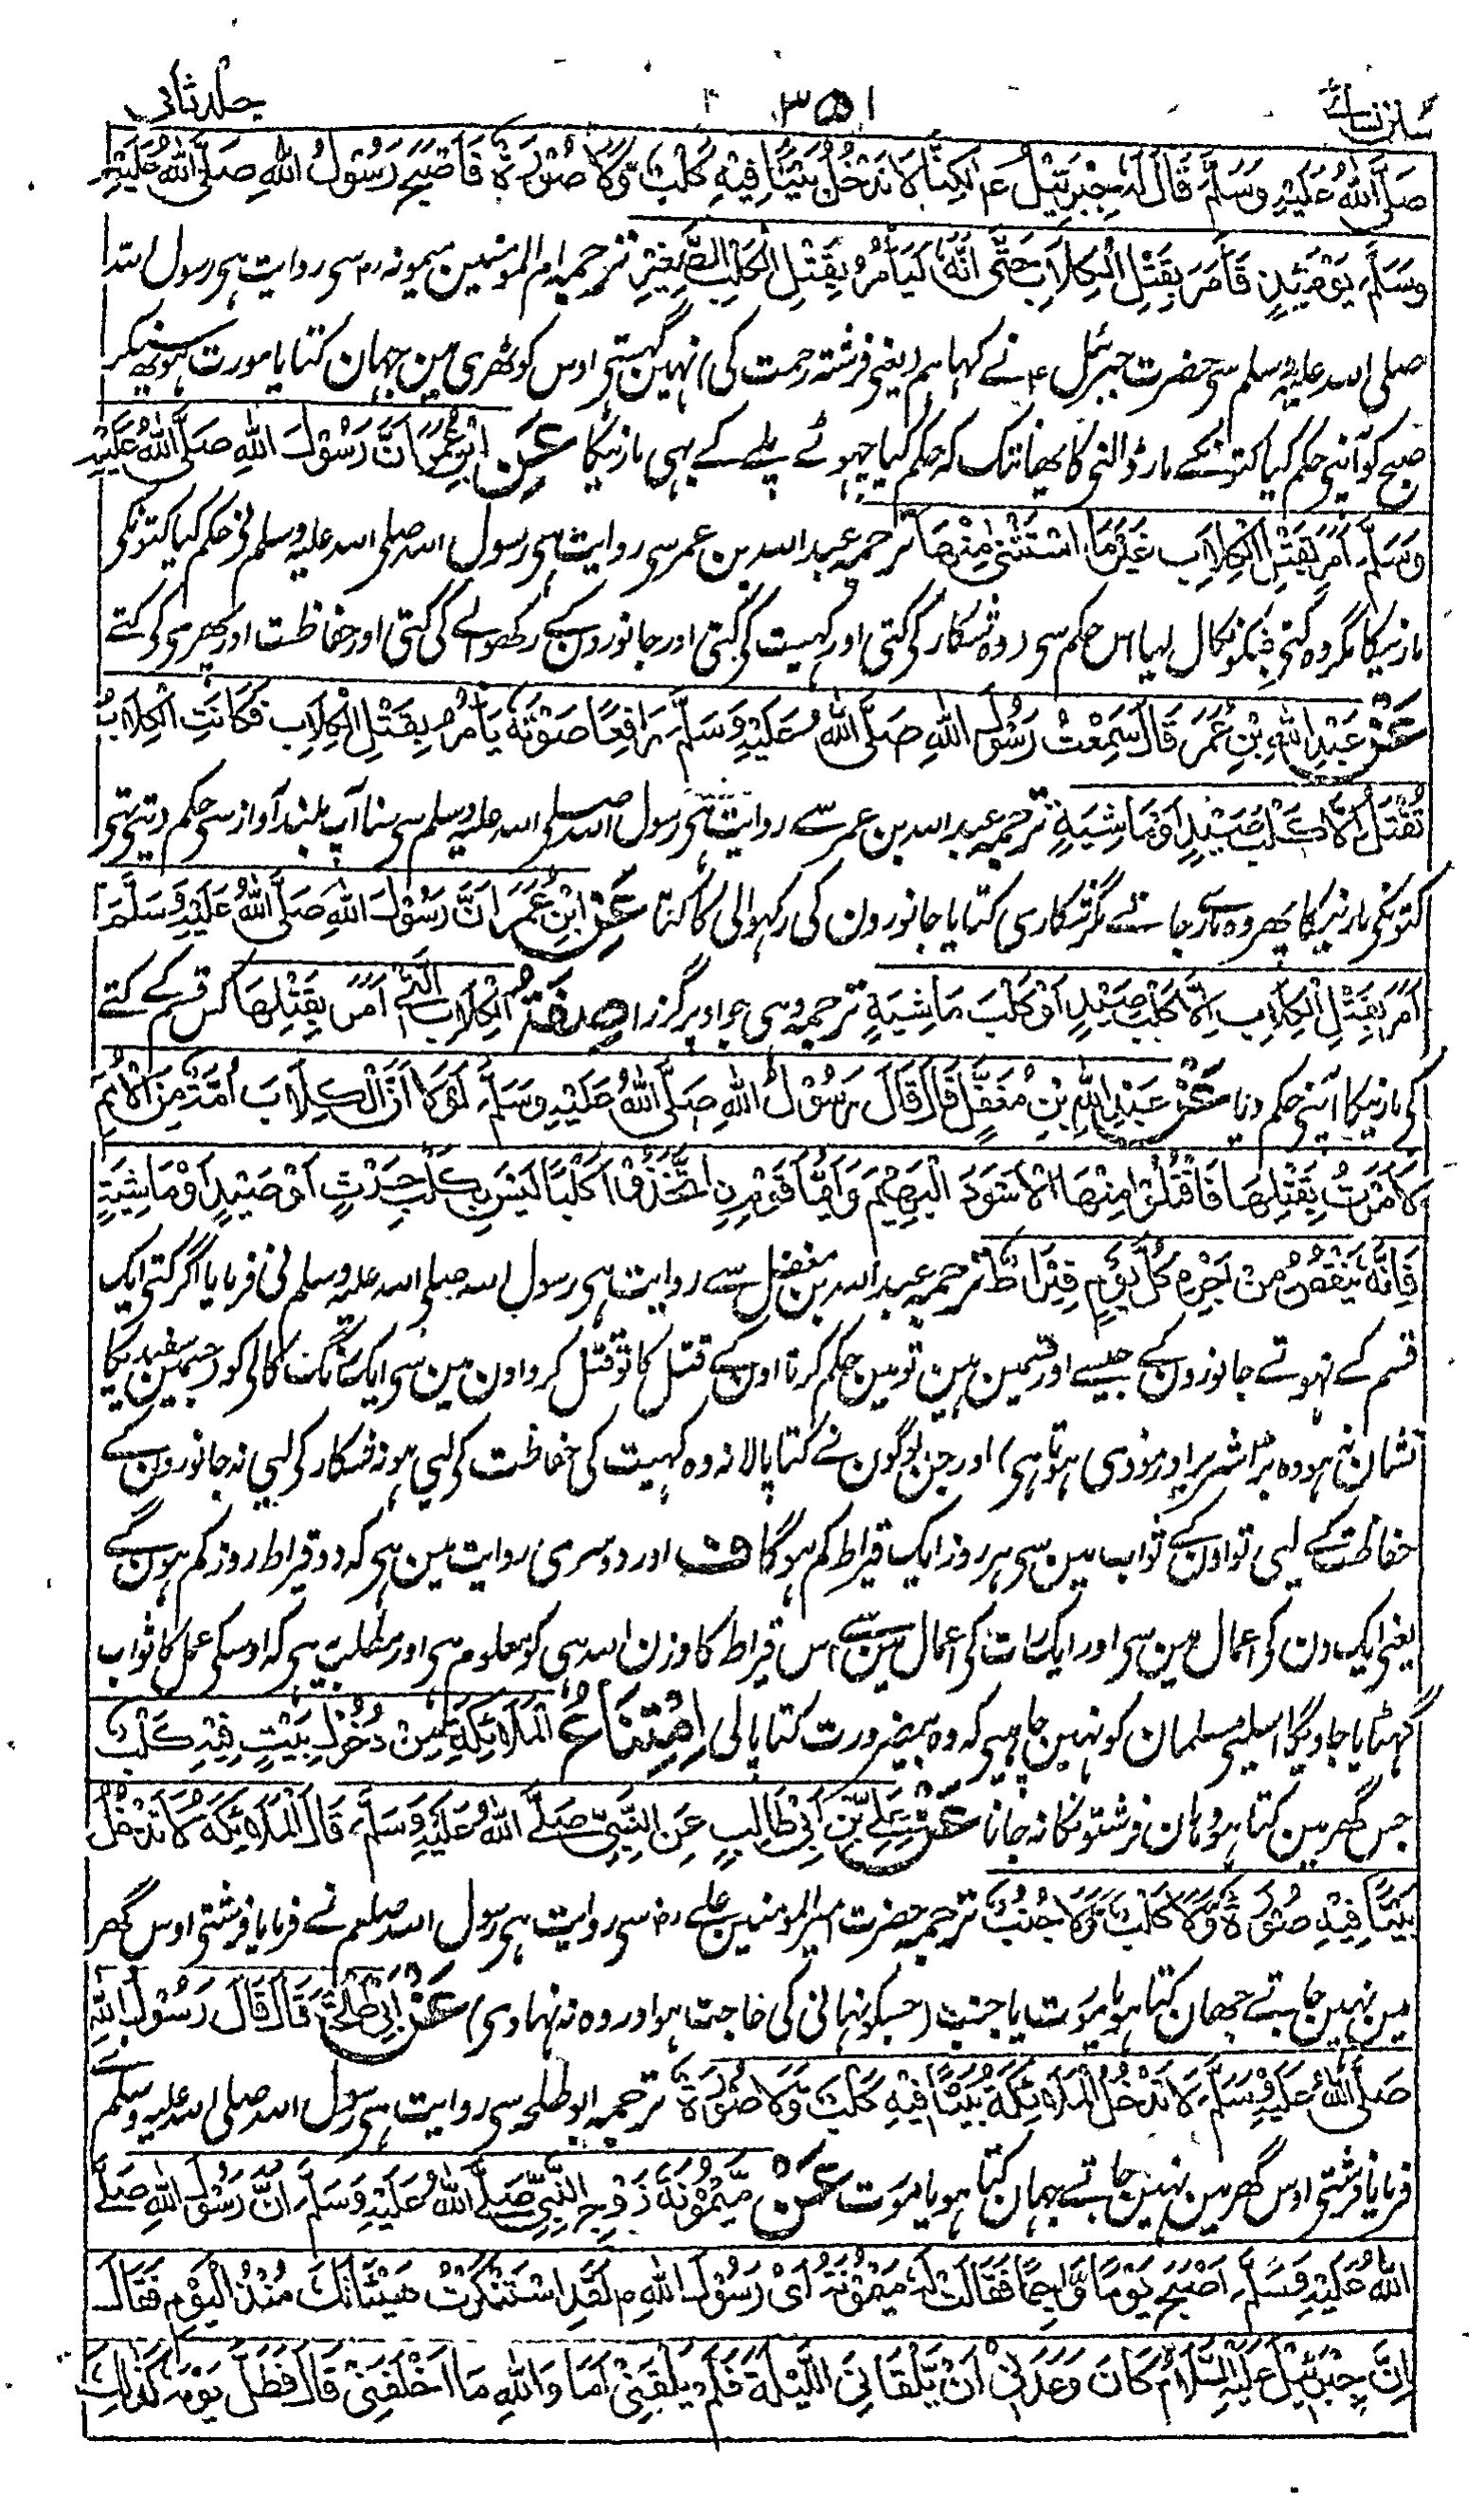 سنن نسائے ۳۵۱ جلد ثانی
صَلَّی اللّٰہُ عَلَیْہِ وَسَلَّمَ قَالَ لَہٗ جِبْرَئِیْلُ ع لٰکِنَّا لَا نَدْخُلُ بَیْتًا فِیْہِ کَلْبٌ وَّلَا صُوْرَۃٌ فَاَصْبَحَ رَسُوْلُ اللّٰہِ صَلَّی اللّٰہُ عَلَیْہِ
وَسَلَّمَ یَوْمَئِذٍ فَاَمَرَ بِقَتْلِ الْکِلَابِ حَتّٰی اَنَّہٗ لَیَأْمُرُ بِقَتْلِ الْکَلْبِ الصَّغِیْرِ ترجمہ ام المومنین میمونہ رض سی روایت ہی رسول اللہ
صلی اللہ علیہ وسلم سی حضرت جبرئیل ؑ نے کہا ہم (یعنی فرشتہ رحمت کی) نہین گہستی اوس کوٹھری مین جہان کتا یا مورت ہو یھ سنکر
صبح کو آپنی حکم کیا کتونکے مارڈالنی کا یھانتک کہ حکم کیا چہوٹے پلے کے بہی مارنیکا عَنِ ابْنِ عُمَرَ اَنَّ رَسُوْلَ اللّٰہِ صَلَّی اللّٰہُ عَلَیْہِ
وَسَلَّمَ اَمَرَ بِقَتْلِ الْکِلَابِ غَیْرَ مَا اسْتَثْنٰی مِنْہَا ترجمہ عبد اللہ بن عمر سی روایت ہی رسول اللہ صلی اللہ علیہ وسلم نی حکم کیا کتونکی
مارنیکا مگر وہ کتی جنکو نکال لیا اس حکم سی (وہ شکار کی کتی اور کہیت کی کتی اور جانورون کے رکھوالے کی کتی اور حفاظت اور پھری کی کتے
عَنْ عَبْدِ اللّٰہِ بْنِ عُمَرَ قَالَ سَمِعْتُ رَسُوْلَ اللّٰہِ صَلَّی اللّٰہُ عَلَیْہِ وَسَلَّمَ رَافِعًا صَوْتَہٗ یَأْمُرُ بِقَتْلِ الْکِلَابِ فَکَانَتِ الْکِلَابُ
تُقْتَلُ اِلَّا کَلْبَ صَیْدٍ اَوْ مَاشِیَۃٍ ترجمہ عبد اللہ بن عمر سے روایت ہی رسول اللہ صلی اللہ علیہ وسلم سی سنا آپ بلند آواز سی حکم دیتی تہی
کتونکی مارنیکا پھر وہ مارے جاتے مگر شکاری کتا یا جانورون کی رکہوالی کا کتا عَنِ ابْنِ عُمَرَ اَنَّ رَسُوْلَ اللّٰہِ صَلَّی اللّٰہُ عَلَیْہِ وَسَلَّمَ
اَمَرَ بِقَتْلِ الْکِلَابِ اِلَّا کَلْبَ صَیْدٍ اَوْ کَلْبَ مَاشِیَۃٍ ترجمہ وہی جو اوپر گزرا صِفَۃُ الْکِلَابِ الَّتِیْ اَمَرَ بِقَتْلِہَا کس قسم کے کتے
کی مارنیکا آپنی حکم دیا عَنْ عَبْدِ اللّٰہِ بْنِ مُغَفَّلٍ قَالَ قَالَ رَسُوْلُ اللّٰہِ صَلَّی اللّٰہُ عَلَیْہِ وَسَلَّمَ لَوْلَا اَنَّ الْکِلَابَ اُمَّۃٌ مِنَ الْاُمَمِ
لَاَمَرْتُ بِقَتْلِہَا فَاقْتُلُوْا مِنْہَا الْاَسْوَدَ الْبَہِیْمَ وَاَیُّمَا قَوْمِ نِ اتَّخَذُوْا کَلْبًا لَیْسَ بِکَلْبِ حَرْثٍ اَوْ صَیْدٍ اَوْ مَاشِیَۃٍ
فَاِنَّہٗ یَنْقُصُ مِنْ اَجْرِہٖ کُلَّ یَوْمٍ قِیْرَاطٌ ترجمہ عبد اللہ بن مغفل سے روایت ہی رسول اللہ صلی اللہ علیہ وسلم نی فرمایا اگر کتی ایک
قسم کے نہوتے جانورون کے جیسے اور قسمین ہین تو مین حکم کرتا اون کے قتل کا تو قتل کرو اون مین سی ایک رنگ کالی کو (جسمین سفیدی کا
نشان نہو وہ بڑا شریر اور موذی ہوتا ہی) اور جن لوگون نے کتا پالا نہ وہ کہیت کی حفاظت کی لیی ہو نہ شکار کی لیی نہ جانورون کے
حفاظت کے لیی تو اون کے ثواب مین سی ہر روز ایک قیراط کم ہوگا ف اور دوسری روایت مین ہی کہ دو قیراط روز کم ہون گے
یعنی ایک دن کی اعمال مین سی اور ایک رات کی اعمال مین سے اس قیراط کا وزن اللہ ہی کو معلوم ہی اور مطلب یہ ہی کہ اوسکی عمل کا ثواب
گہٹایا جاویگا اسلیی مسلمان کو نہین چاہیی کہ وہ بیضرورت کتا پالی اِمْتِنَاعُ الْمَلَائِکَۃِ مِنْ دُخُوْلِ بَیْتٍ فِیْہِ کَلْبٌ
جس گھر مین کتا ہو وہان فرشتونکا نہ جانا عَنْ عَلِیِّ بْنِ اَبِیْ طَالِبٍ عَنِ النَّبِیِّ صَلَّی اللّٰہُ عَلَیْہِ وَسَلَّمَ قَالَ الْمَلَائِکَۃُ لَا تَدْخُلُ
بَیْتًا فِیْہِ صُوْرَۃٌ وَّلَا کَلْبٌ وَّلَا جُنُبٌ ترجمہ حضرت امیر المومنین علے رض سی روایت ہی رسول اللہ صلعم نے فرمایا فرشتی اوس گھر
مین نہین جاتے جھان کتا ہو یا مورت یا جنب (جسکو نہانی کی حاجت ہو اور وہ نہ نہاوی) عَنْ اَبِیْ طَلْحَۃَ قَالَ قَالَ رَسُوْلُ اللّٰہِ
صَلَّی اللّٰہُ عَلَیْہِ وَسَلَّمَ لَا تَدْخُلُ الْمَلَائِکَۃُ بَیْتًا فِیْہِ کَلْبٌ وَّلَا صُوْرَۃٌ ترجمہ ابو طلحہ سی روایت ہی رسول اللہ صلی اللہ علیہ وسلم نے
فرمایا فرشتی اوس گھر مین نہین جاتے جہان کتا ہو یا مورت عَنْ مَیْمُوْنَۃَ زَوْجِ النَّبِیِّ صَلَّی اللّٰہُ عَلَیْہِ وَسَلَّمَ اَنَّ رَسُوْلَ اللّٰہِ صَلَّی
اللّٰہُ عَلَیْہِ وَسَلَّمَ اَصْبَحَ یَوْمًا وَّاجِمًا فَقَالَتْ لَہٗ مَیْمُوْنَۃُ اَیْ رَسُوْلَ اللّٰہِ م لَقَدِ اسْتَنْکَرْتُ ہَیْئَتَکَ مُنْذُ الْیَوْمِ فَقَالَ
اِنَّ جِبْرَئِیْلَ عَلَیْہِ السَّلَامُ کَانَ وَعَدَنِیْ اَنْ یَّلْقَانِیَ اللَّیْلَۃَ فَلَمْ یَلْقَنِیْ اَمَا وَاللّٰہِ مَا اَخْلَفَنِیْ قَالَ فَظَلَّ یَوْمَہٗ کَذٰلِکَ